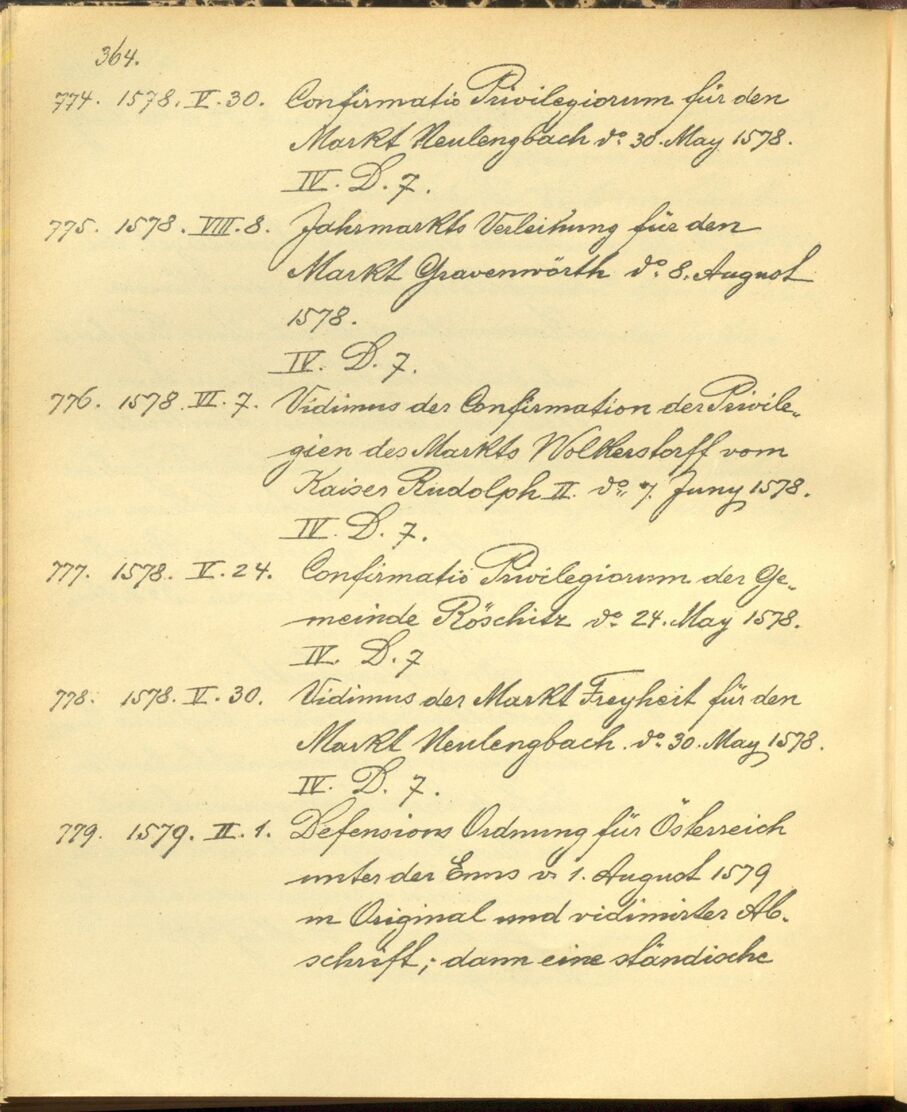 364.
774. 1578. V. 30. Confirmatio Privilegiorum für den
Markt Neulengbach do 30. May 1578.
IV. D. 7.
775. 1578. VIII. 8. Jahrmarkts Verleihung für den
Markt Gravenwörth do 8. August
1578.
IV. D. 7.
776. 1578. VI. 7. Vidimus der Confirmation der Privile„
gien des Markts Wolkerstorff vom
Kaiser Rudolph II. do 7. Juny 1578.
IV. D. 7.
777. 1578. V. 24. Confirmatio Privilegiorum der Ge„
meinde Röschitz do 24. May 1578.
IV. D. 7
778. 1578. V. 30. Vidimus der Markt Freyheit für den
Markt Neulengbach. do 30. May 1578.
IV. D. 7.
779. 1579. II. 1. Defensions Ordnung für Österreich
unter der Enns v. 1. August 1579
in Original und vidimirter Ab-
schrift; dann eine ständische